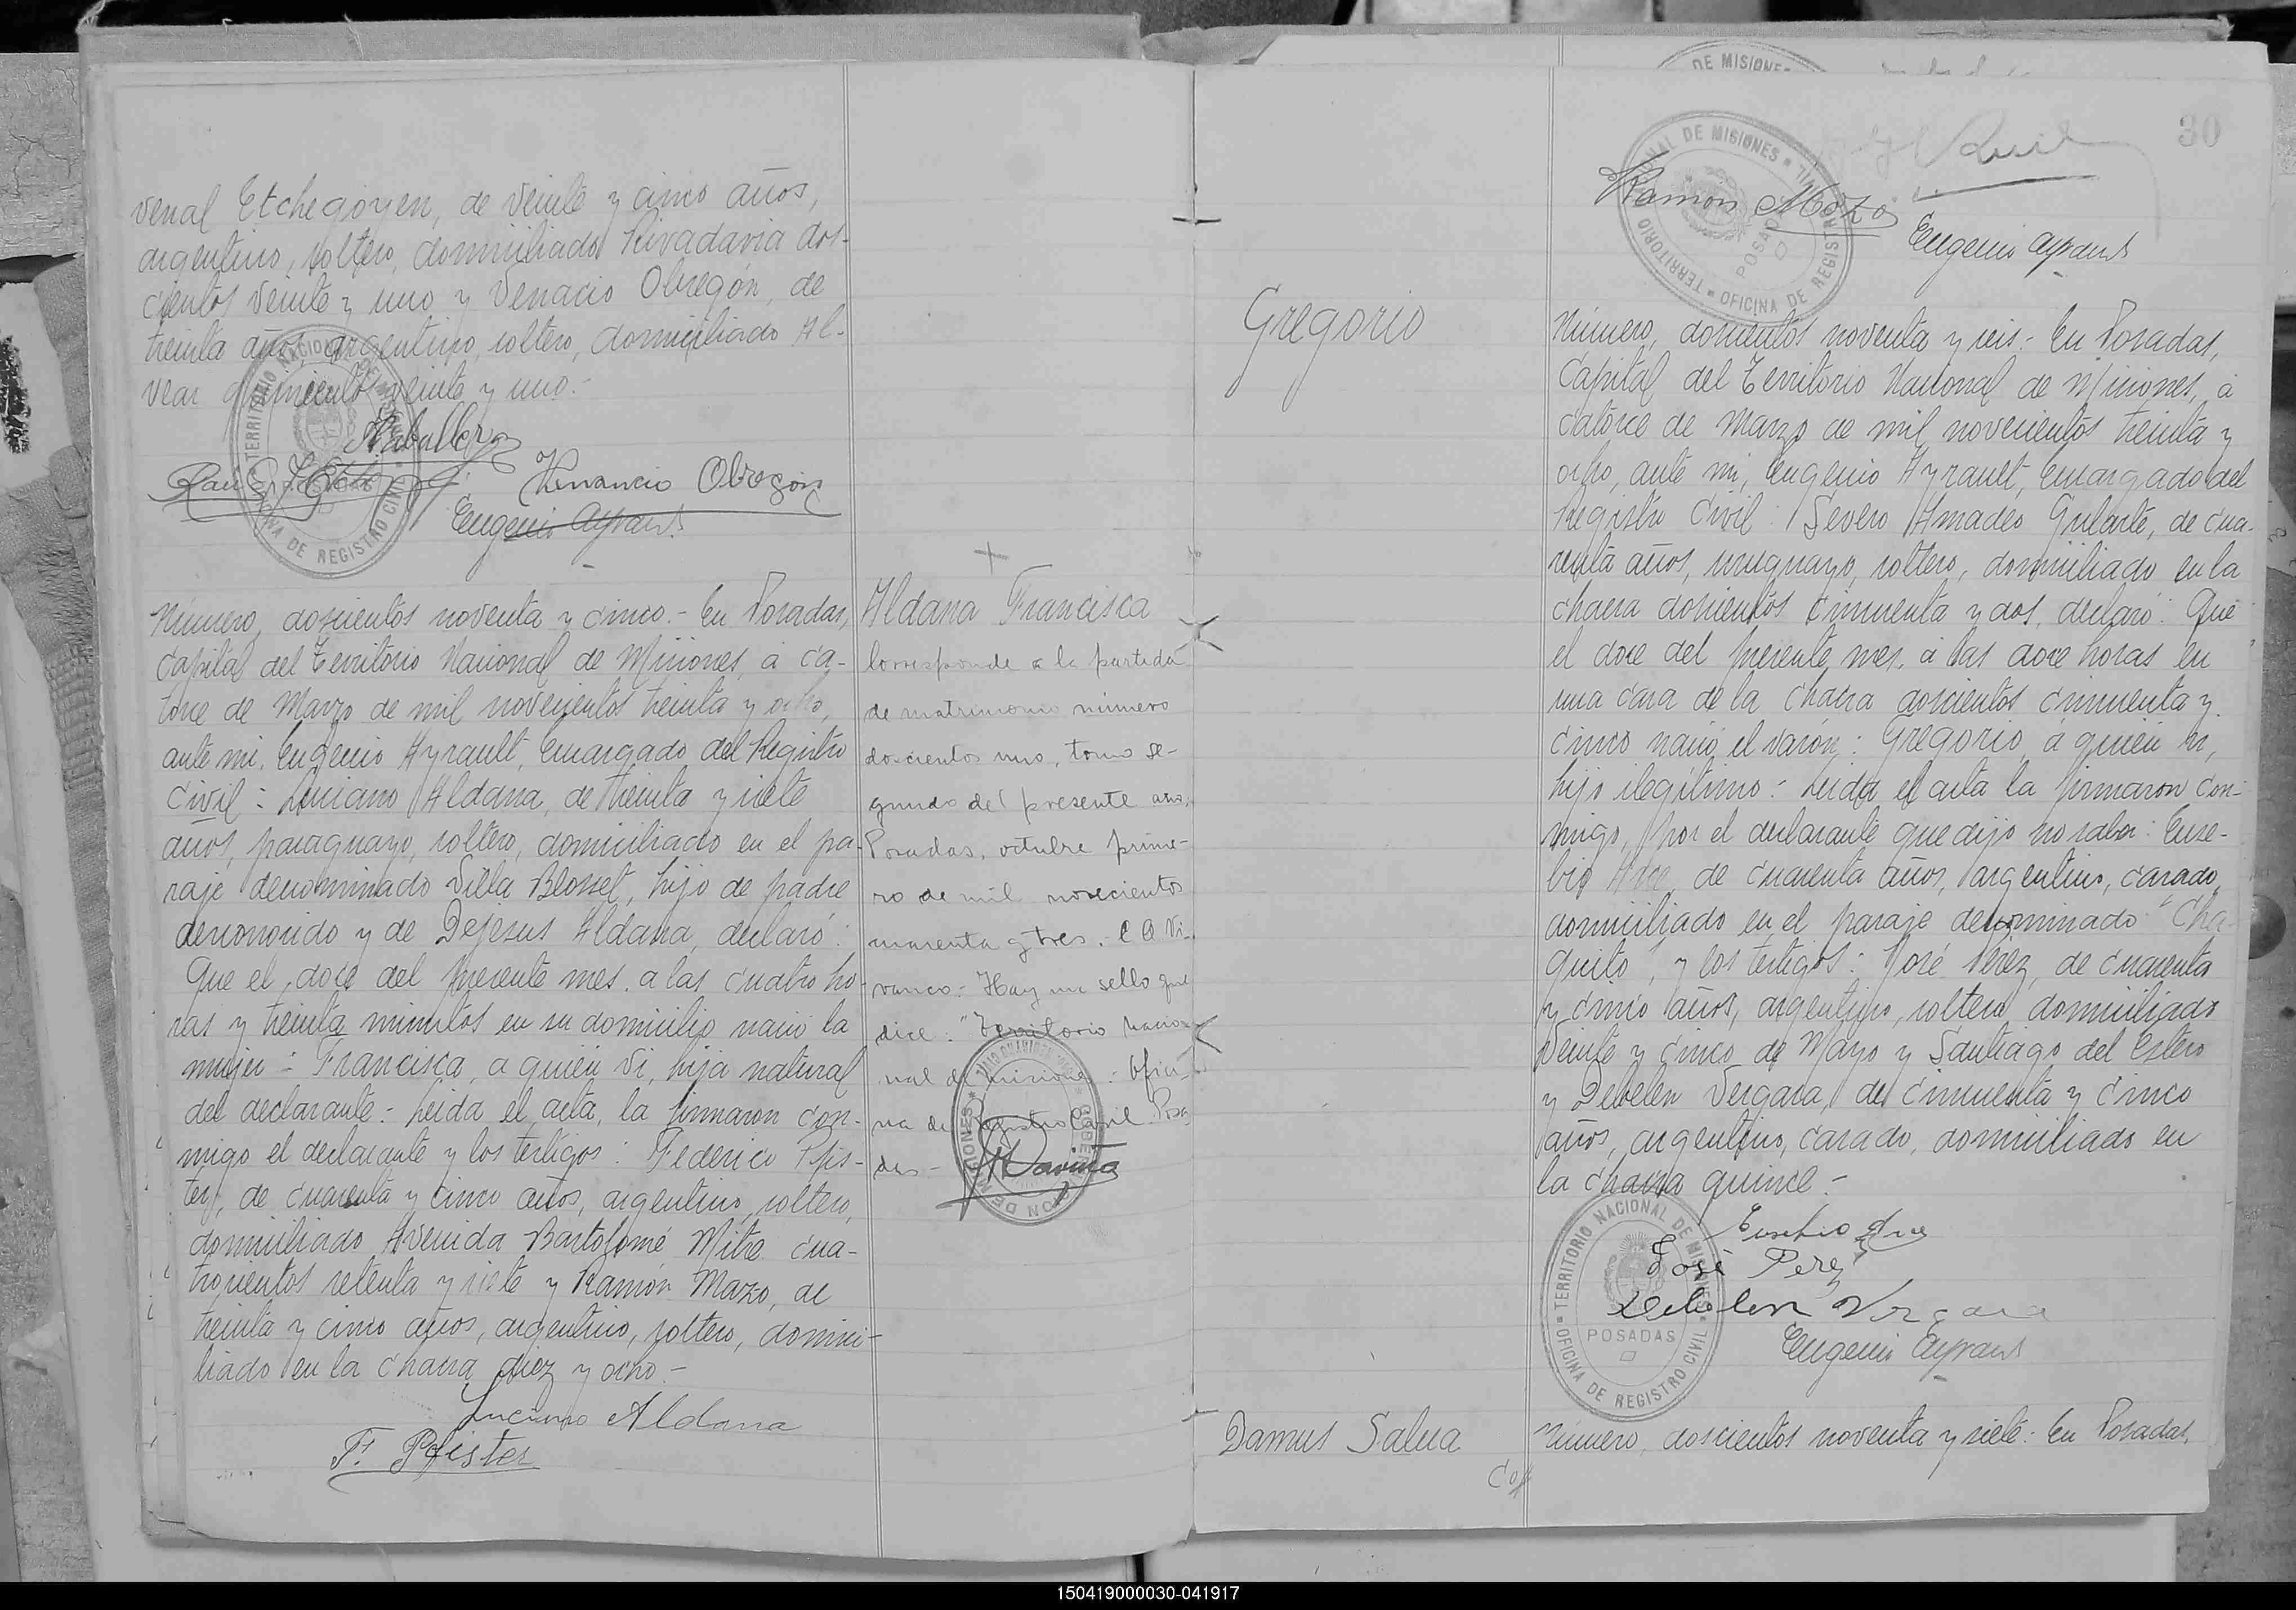 venal Etchegoyen, de veinte y cinco años,
argentino, soltero, domiciliado Rivadavia dos-
cientos veinte y uno y Venacio Obregón, de
treinta años, argentino, soltero, domiciliado Al-
vear quinientos veinte y uno.-
Venancio Obregón
Eugenio Ayrault
Número, doscientos noventa y cinco.- En Posadas,
Capital del Territorio Nacional de Misiones, á ca-
torce de Marzo de mil novecientos treinta y ocho,
ante mi, Eugenio Ayrault, Encargado del Registro
Civil: Luciano Aldana, de treinta y siete
años, paraguayo, soltero, domiciliado en el pa-
raje denominado Villa Blosset, hijo de padre
desconocido y de Dejesus Aldana, declaró:
Que el doce del presente mes, a las cuatro ho-
ras y treinta minutos en su domicilio nació la
mujer: Francisca, a quién vi, hija natural
del declarante: Leída el acta, la firmaron con-
migo el declarante y los testigos: Federico Pfis-
ter, de cuarenta y cinco años, argentino, soltero,
domiciliado Avenida Bartolomé Mitre cua-
trocientos setenta y siete y Ramón Mazo, de
treinta y cinco años, argentino, soltero, domici-
liado en la chacra diez y ocho.-
Luciano Aldana
F. Pfister
Aldana Francisca
Corresponde a la partida
de matrimonio número
doscientos uno, tomo se-
gundo del presente año,
Posadas, octubre prime-
ro de mil novecientos
cuarenta y tres.- C A Vi-
vanco: Hay un sello que
dice: "Territorio Nacio-
nal de Misiones: Ofici-
na de Registro Civil. Posa-
das-
30
TERRITORIO NACIONAL DE MISIONES
OFICINA DE REGISTRO CIVIL
POSADAS
Ramón Mozo
Eugenio Ayrault
Gregorio
Número, doscientos noventa y seis: En Posadas,
Capital del Territorio Nacional de Misiones, á
catorce de Marzo de mil novecientos treinta y
ocho, ante mi, Eugenio Ayrault, Encargado del
Registro Civil: Severo Amadeo Gularte, de cua-
renta años, uruguayo, soltero, domiciliado en la
chacra doscientos cincuenta y dos, declaró: Que
el doce del presente mes, a las doce horas en
una casa de la chacra doscientos cincuenta y
cinco nació el varón: Gregorio, á quién vi,
hijo ilegítimo: Leída el acta la firmaron con-
migo, por el declarante que dijo no saber: Euse-
bio Arce, de cuarenta años, argentino, casado,
domiciliado en el paraje denominado "Cha-
quito", y los testigos: José Pérez, de cuarenta
y cinco años, argentino, soltero, domiciliado
Veinte y Cinco de Mayo y Santiago del Estero
y Debelen Vergara, de cincuenta y cinco
años, argentino, casado, domiciliado en
la chacra quince.-
Eusebio Arce
José Perez
Debelen Vergara
Eugenio Ayrault
TERRITORIO NACIONAL DE MISIONES
OFICINA DE REGISTRO CIVIL
POSADAS
Damus Salua
Número, doscientos noventa y siete: En Posadas,
150419000030-041917